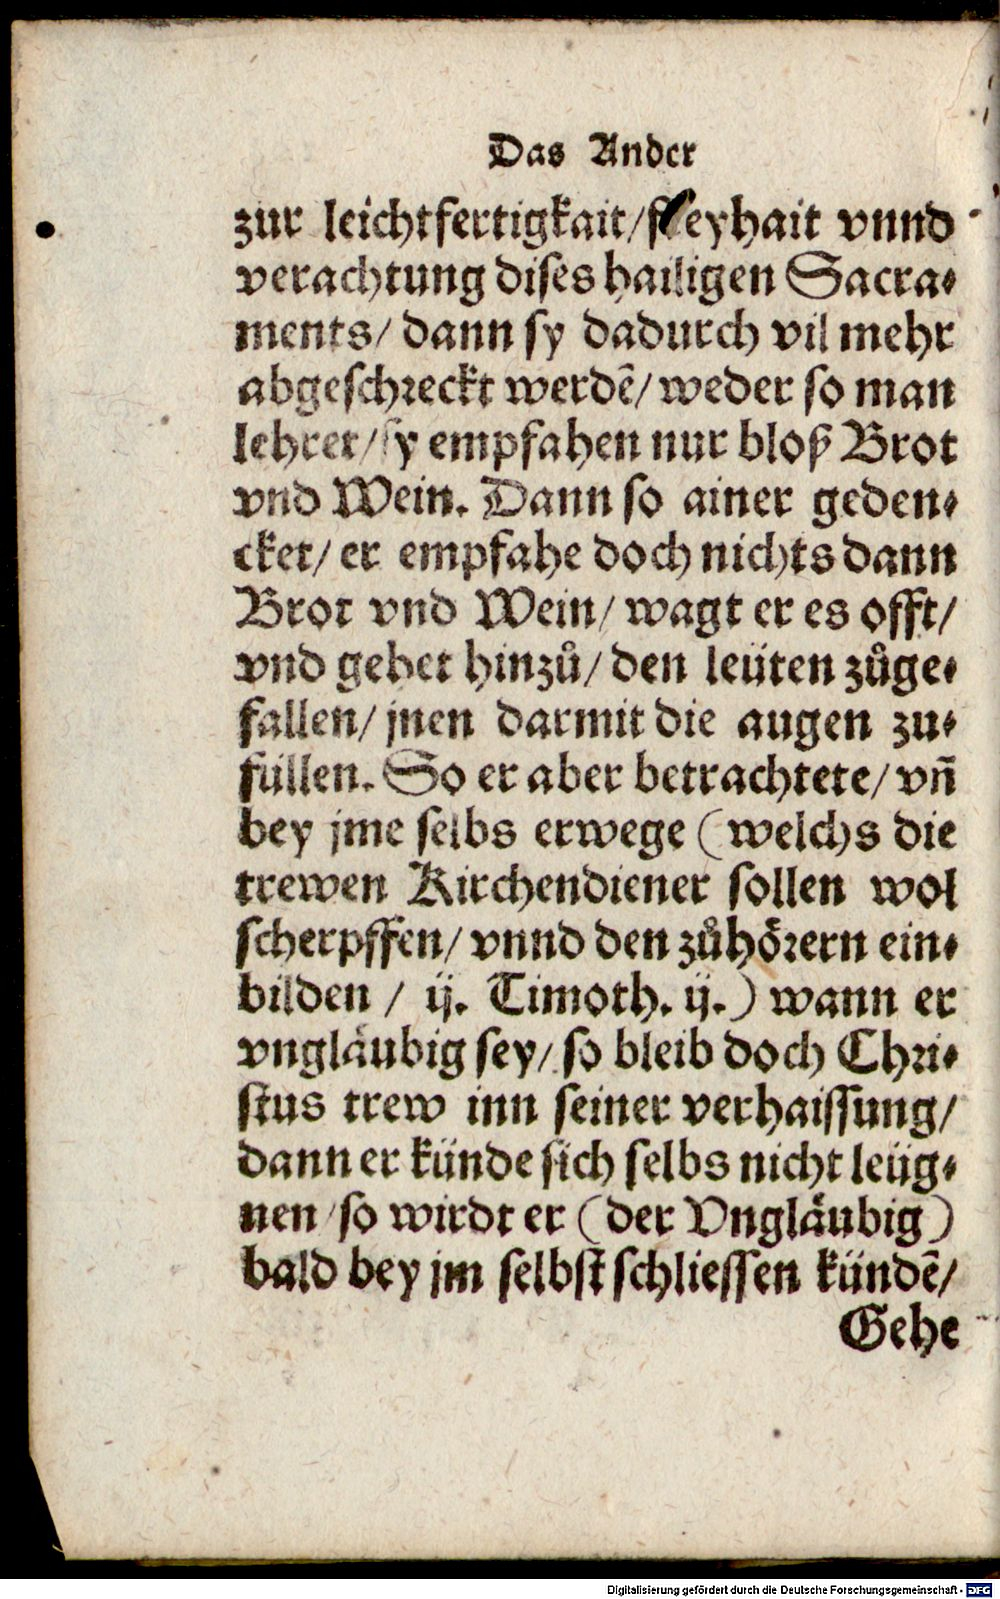 Das Ander
zur leichtfertigkait/ freyhait vnnd
verachtung dises hailigen Sacra⸗
ments/ dann sy dadurch vil mehr
abgeschreckt werdẽ/ weder so man
lehret/ sy empfahen nur bloß Brot
vnd Wein. Dann so ainer geden⸗
cket/ er empfahe doch nichts dann
Brot vnd Wein/ wagt er es offt/
vnd gehet hinzů/ den leüten zůge⸗
fallen/ jnen darmit die augen zu⸗
füllen. So er aber betrachtete/ vñ
bey jme selbs erwege (welchs die
trewen Kirchendiener sollen wol
scherpffen/ vnnd den zůhörern ein⸗
bilden / ij. Timoth. ij.) wann er
vngläubig sey/ so bleib doch Chri⸗
stus trew inn seiner verhaissung/
dann er künde sich selbs nicht leüg⸗
nen/ so wirdt er (der Vngläubig)
bald bey jm selbst schliessen kündẽ/
Gehe
Digitalisierung gefördert durch die Deutsche Forschungsgemeinschaft - DFG